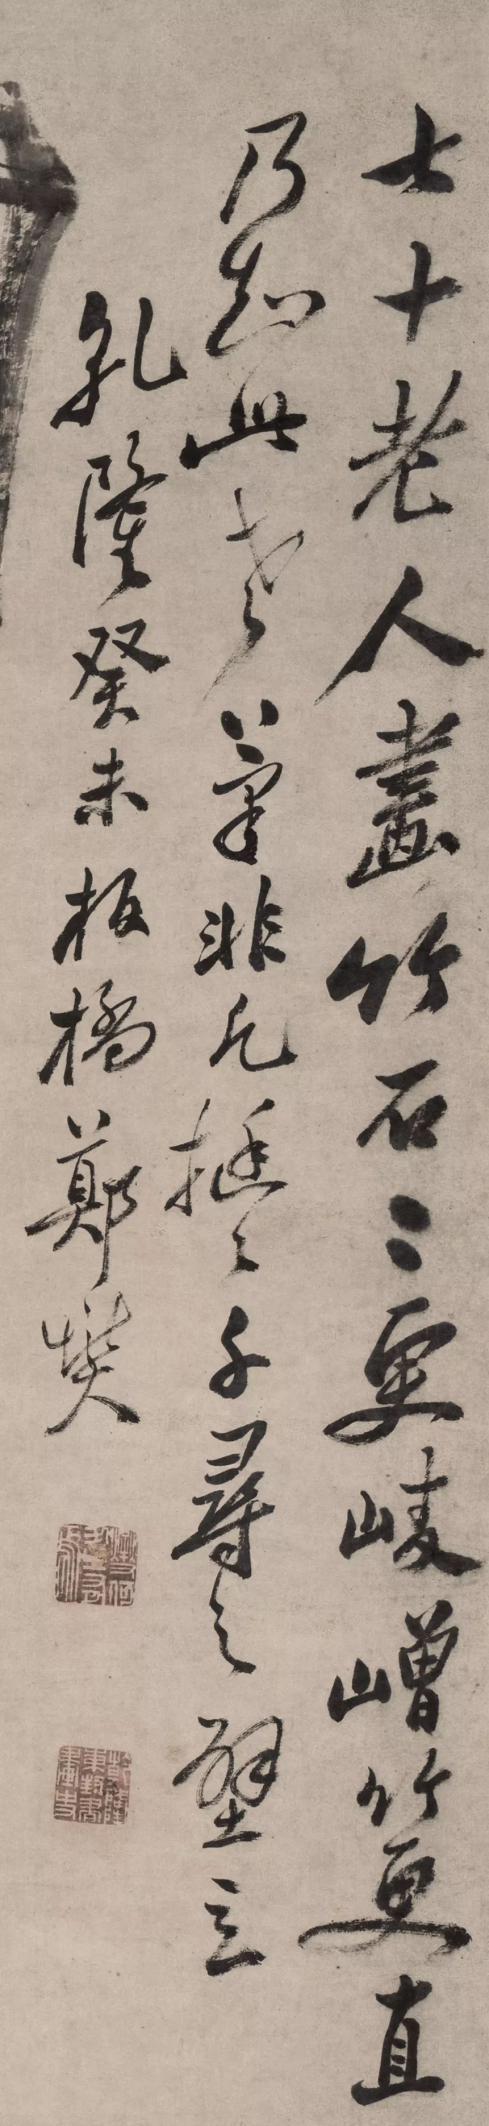 七十老人畫竹石石更崚嶒竹更直
乃知此老筆非凡挺挺千尋之壁立
乾隆癸未板橋鄭燮